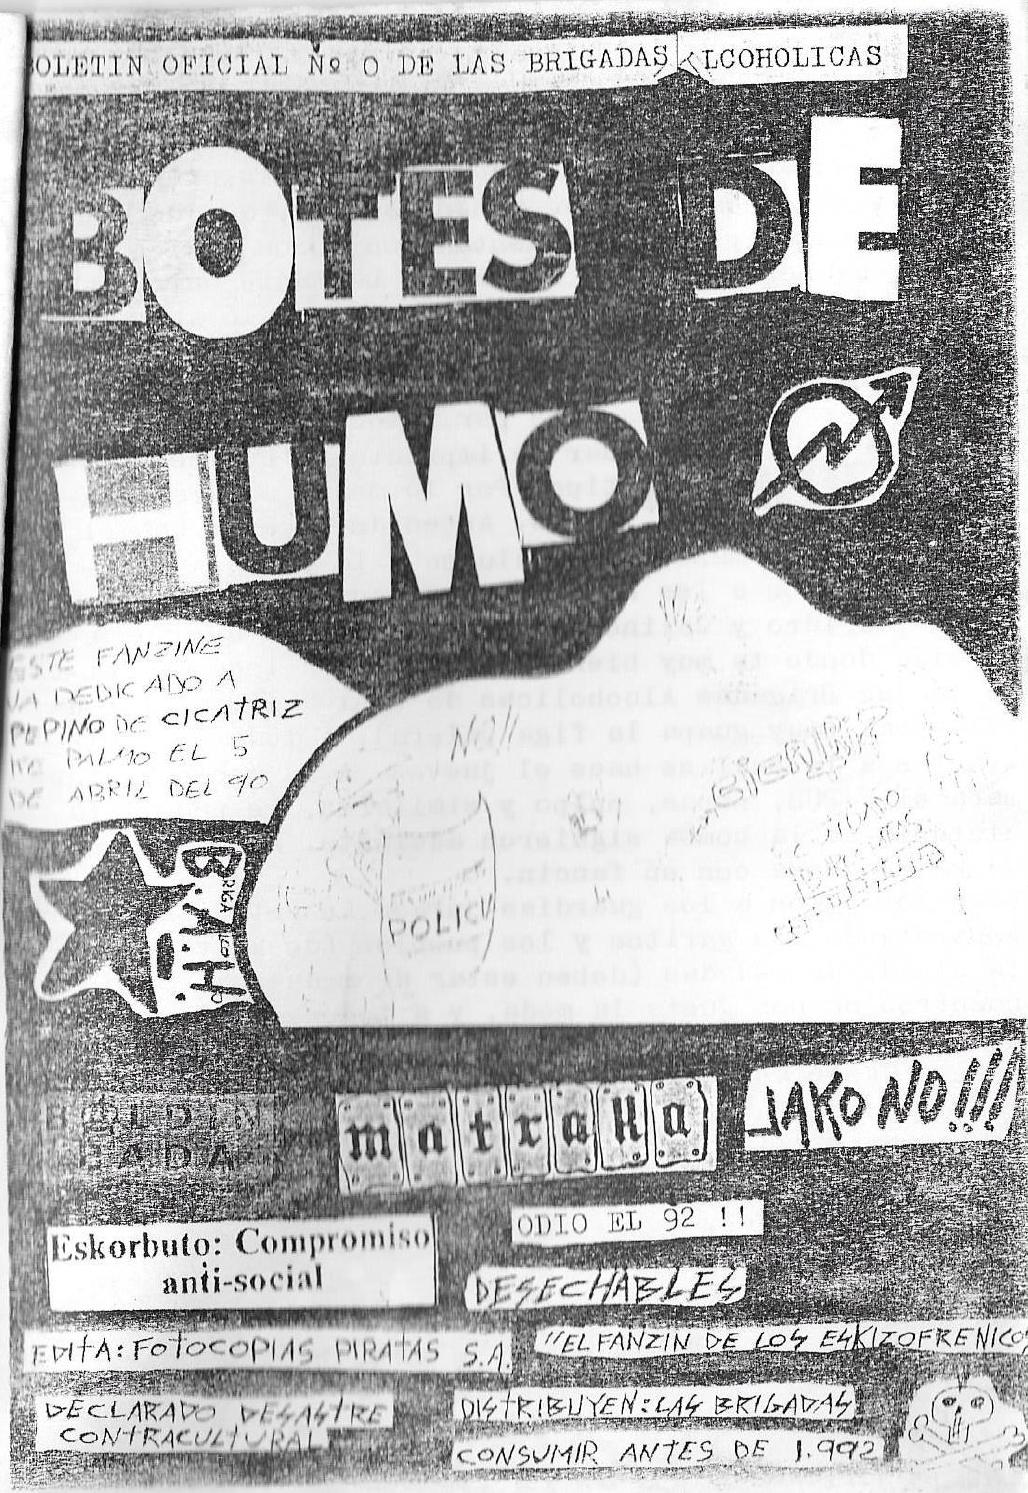 BOLETIN OFICIAL Nº 0 DE LAS BRIGADAS ALCOHOLICAS
BOTES DE
HUMO
ESTE FANZINE
VA DEDICADO A
PEPINO DE CICATRIZ
PALMO EL 5
DE ABRIL DEL 90
BRIGA
B.A.H.
NO!!
POLICIA
matralla
JAKO NO!!!
ODIO EL 92 !!
Eskorbuto: Compromiso
anti-social
DESECHABLES
EDITA: FOTOCOPIAS PIRATAS S.A.
"EL FANZIN DE LOS ESKIZOFRENICOS
DECLARADO DESASTRE
CONTRACULTURAL
DISTRIBUYEN: LAS BRIGADAS
CONSUMIR ANTES DE 1.992